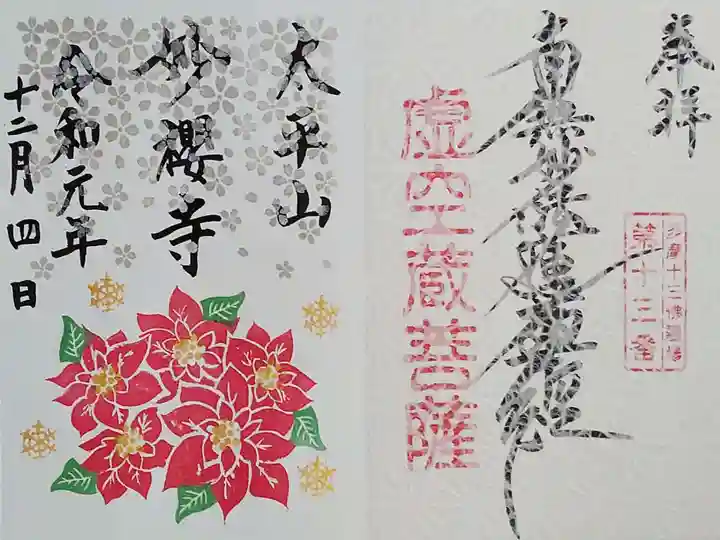 奉拝
多摩十三佛霊場
第十三番
南無妙法蓮華経
虚空蔵菩薩
太平山
妙櫻寺
令和元年
十二月四日